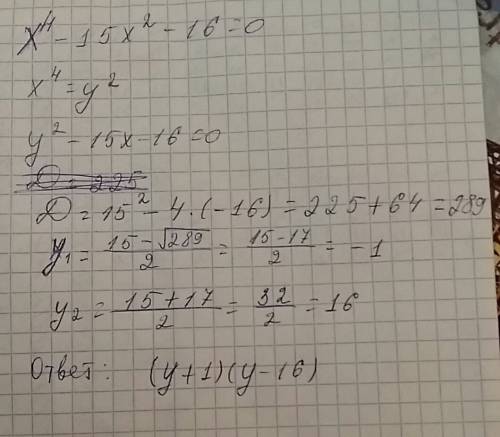 x⁴ - 15x² - 16 = 0
x⁴ = y²
y² - 15x - 16 = 0
D = 225
D = 15² - 4 · (-16) = 225 + 64 = 289
y₁ = (15 - √289)/2 = (15 - 17)/2 = -1
y₂ = (15 + 17)/2 = 32/2 = 16
Ответ: (y + 1)(y - 16)